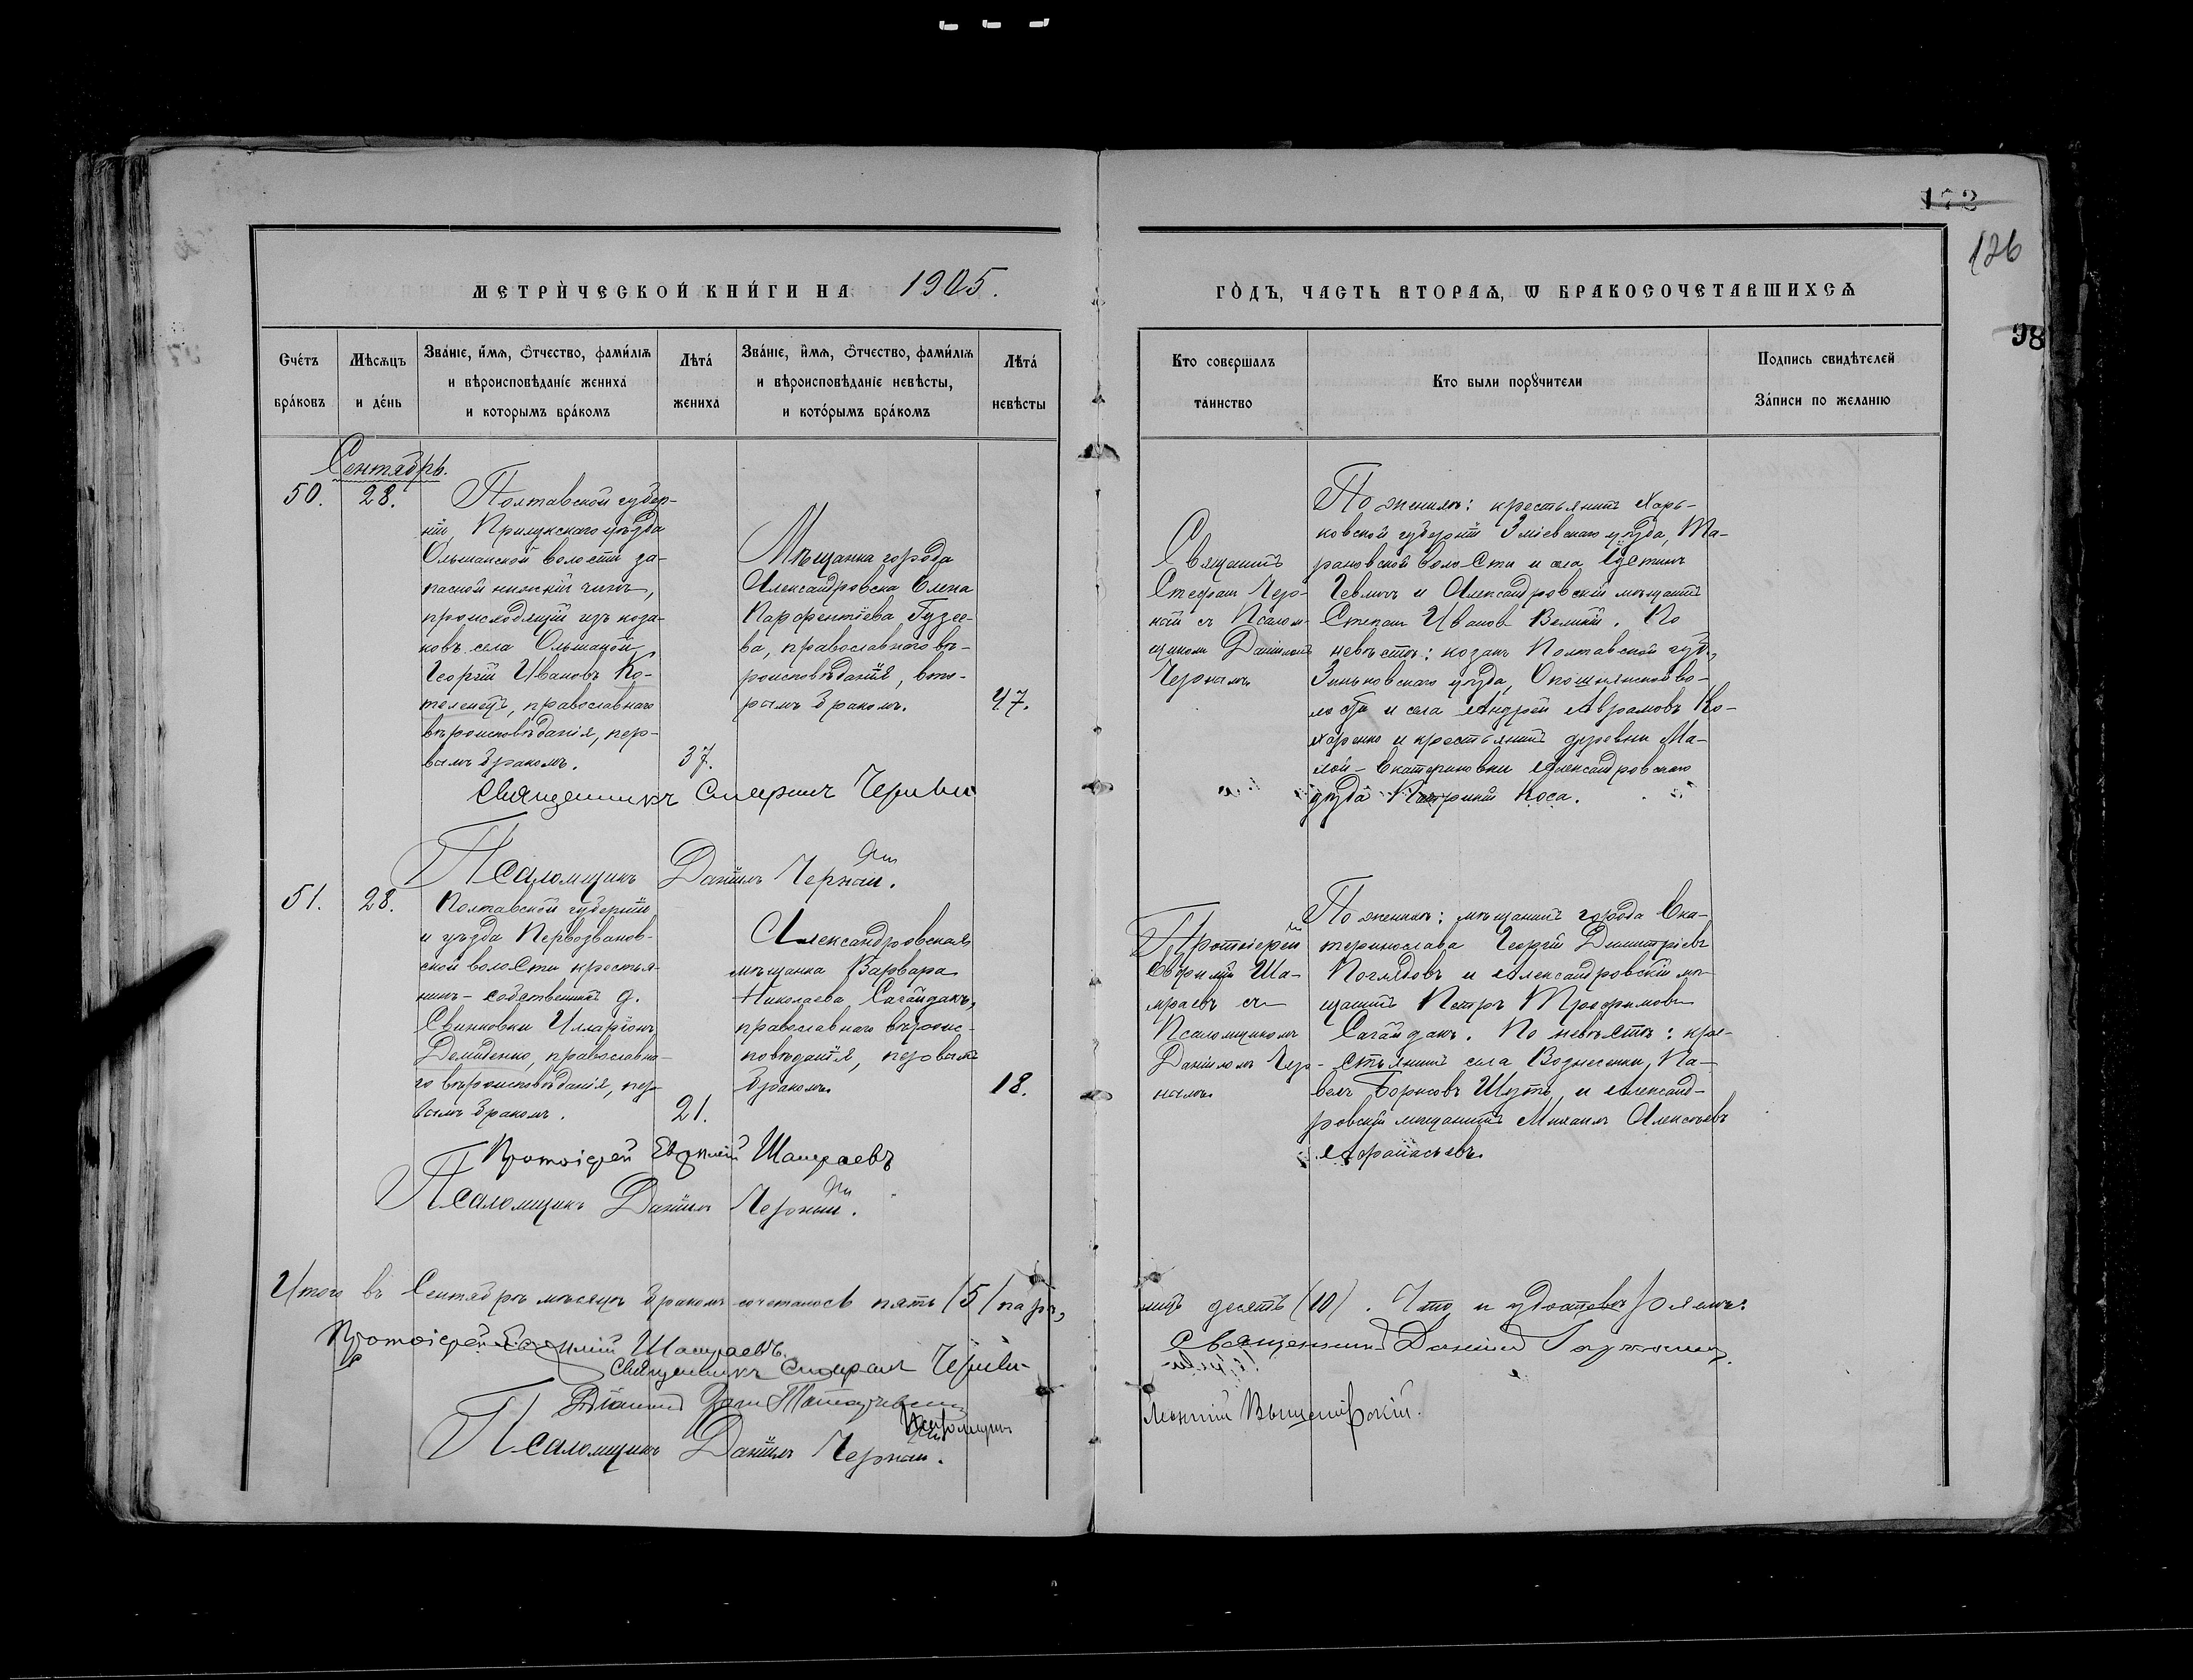 172
126
98
МЕТРИЧЕСКОЙ КНИГИ НА 1905.
ГОДЪ, ЧАСТЬ ВТОРАѦ, Ѡ БРАКОСОЧЕТАВШИХСѦ
Счетъ браковъ
Мѣсѧцъ и день
Званіе, имѧ, отчество, фамиліѧ и вѣроисповѣданіе жениха и которымъ бракомъ
Лѣта жениха
Званіе, имѧ, отчество, фамиліѧ и вѣроисповѣданіе невѣсты, и которымъ бракомъ
Лѣта невѣсты
Кто совершалъ таинство
Кто были порꙋчители
Подпись свидѣтелей записи по желанію
Сентябрь.
50.
28.
Полтавской губер-
ніи, Прилукскаго уѣзда
Ольшанской волости за-
пасной нижній чинъ,
происходящій изъ коза-
ковъ села Ольшаной
Георгій Ивановъ Ко-
телевецъ, православнаго
вѣроисповѣданія, пер-
вымъ бракомъ.
37.
Мѣщанка города
Александровска Елена
Парфентіева Гузее-
ва, православнаго вѣ-
роисповѣданія, вто-
рымъ бракомъ.
47.
Священникъ
Стефанъ Чер-
ный съ Псалом-
щикомъ Даніиломъ
Чернымъ
По женихѣ: крестьянинъ Харь-
ковской губерніи Зміевскаго уѣзда, Та-
рановской волости и села Устинъ
Чевличъ и Александровскій мѣщанинъ
Степанъ Ивановъ Великій. По
невѣстѣ: козакъ Полтавской губ.,
Зеньковскаго уѣзда, Опошнянской во-
лости и села Андрей Аврамовъ Ко-
харенко и крестьянинъ деревни Ма-
лой-Екатериновки Александровскаго
уѣзда Коса.
Священникъ Стефанъ
Псаломщикъ Даніилъ Черный.
51.
28.
Полтавской губерніи
и уѣзда Первозванов-
ской волости крестья-
нинъ-собственникъ д.
Свинковки Илларіонъ
Демиденко, православна-
го вѣроисповѣданія, пер-
вымъ бракомъ.
21.
Александровская
мѣщанка Варвара
Николаева Сагайдакъ,
православнаго вѣроис-
повѣданія, первымъ
бракомъ.
18.
Протоіерей
Евфимій Ша-
мраевъ съ
Псаломщикомъ
Даніиломъ Чер-
нымъ.
По женихѣ: мѣщанинъ города Ека-
теринослава Георгій Димитріевъ
Поглядовъ и Александровскій мѣ-
щанинъ Петръ Трофимовъ
Сагайдакъ. По невѣстѣ: кре-
стьянинъ села Вознесенки, Па-
велъ Борисовъ Шутъ, и Александ-
ровскій мѣщанинъ Михаилъ Алексѣевъ
Афанасьевъ.
Протоіерей Евфимій Шамраевъ
Псаломщикъ Даніилъ Черный.
Итого въ Сентябрѣ мѣсяцѣ бракомъ сочеталось пять (5) паръ,
лицъ десять (10). Что и удостовѣряемъ:
Протоіерей Евфимій Шамраевъ.
Священникъ Даніилъ
Священникъ Стефанъ
Псаломщикъ
Псаломщикъ Даніилъ Черный.